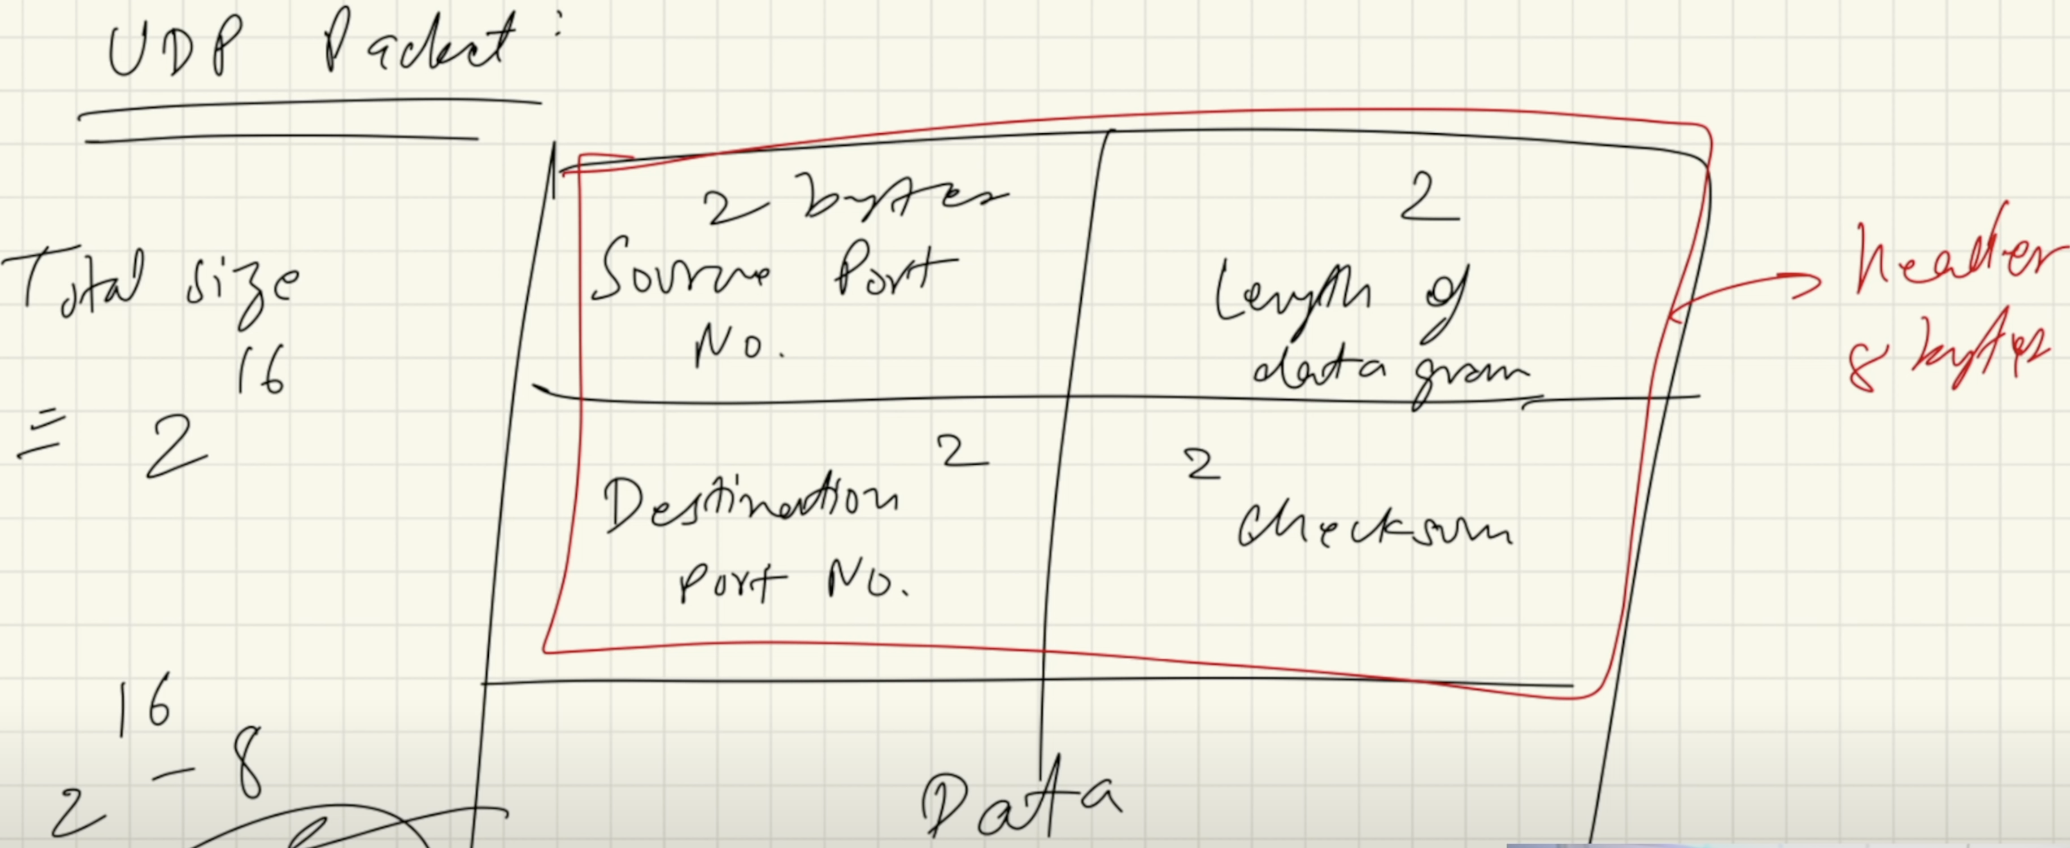 UDP Packet:
Total size
= 2^16
2^16 - 8
2 bytes
Source Port
No.
2
Length of
data gram
2
Destination
Port No.
2
Checksum
Data
header
8 bytes